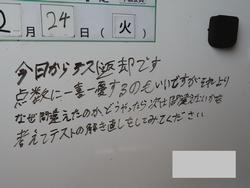 2月24日(火)
今日からテス返却です
点数に一喜一憂するのもいいですがそれより
なぜ間違えたのか、どうやったら次は間違えないかを
考えてテストの解き直しをしてみてください